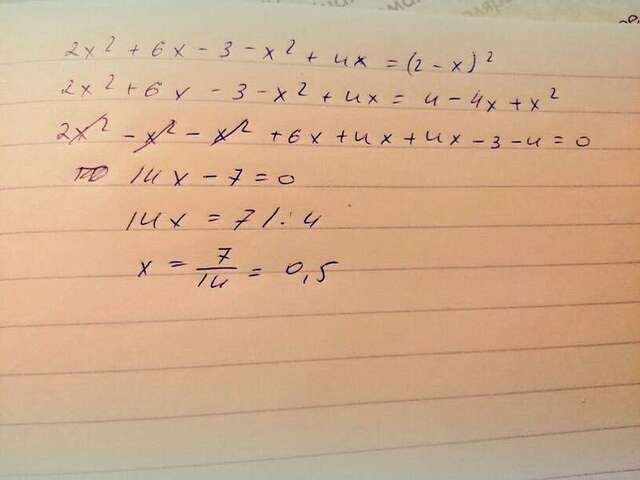 2x² + 6x - 3 - x² + 4x = (2 - x)²
2x² + 6x - 3 - x² + 4x = 4 - 4x + x²
2x² - x² - x² + 6x + 4x + 4x - 3 - 4 = 0
14x - 7 = 0
14x = 7 / : 4
x = 7/14 = 0,5